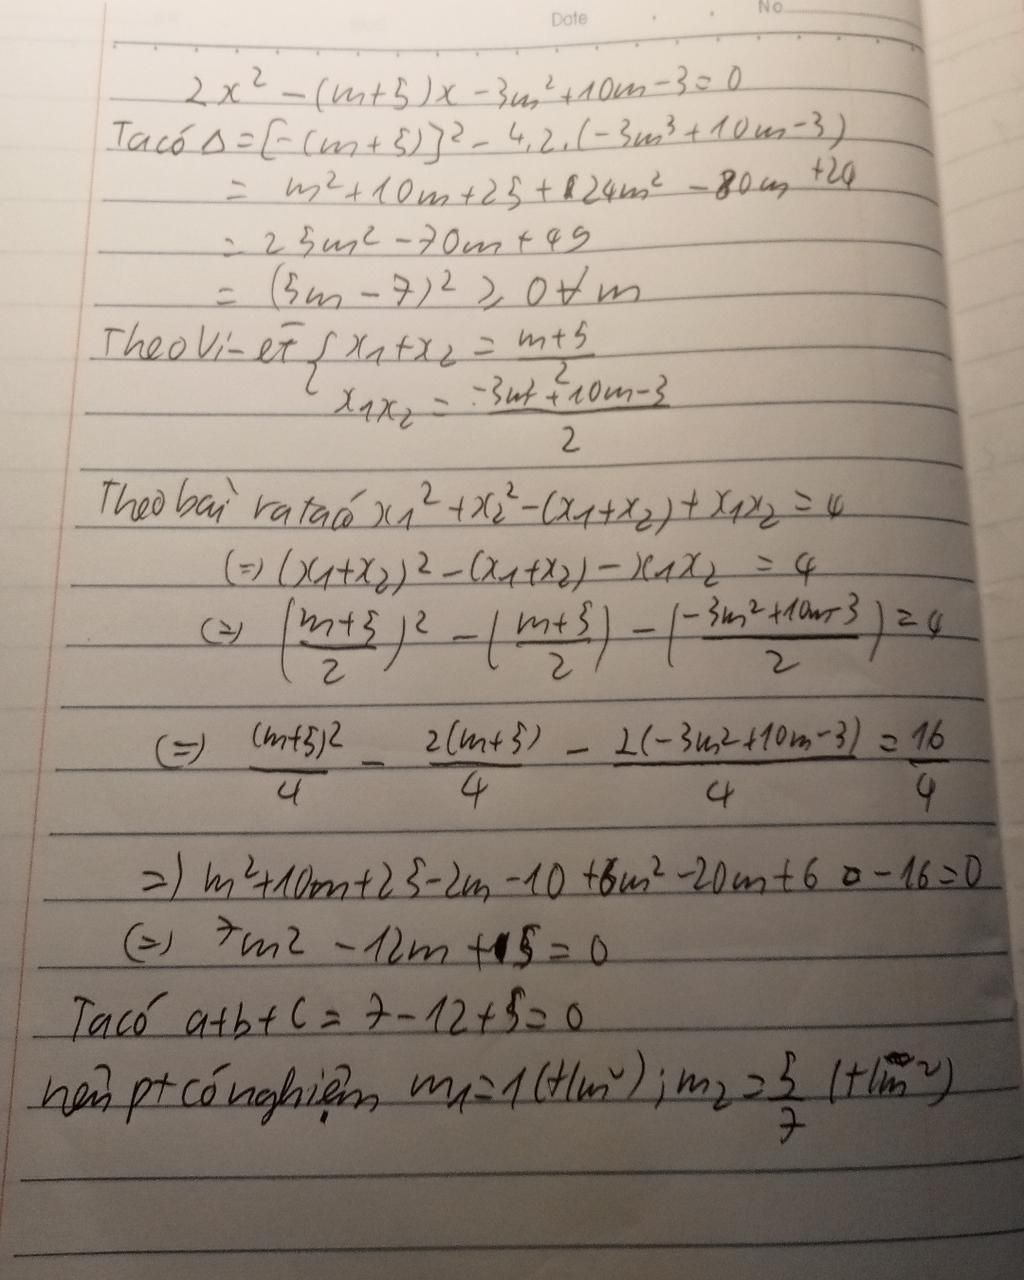 Date No
2x² - (m+5)x - 3m² + 10m - 3 = 0
Ta có Δ = [-(m+5)]² - 4.2.(-3m³ + 10m - 3)
= m² + 10m + 25 + 24m² - 80m + 24
= 25m² - 70m + 49
= (5m - 7)² ≥ 0 ∀ m
Theo Vi-ét { x1 + x2 = (m+5)/2
x1x2 = (-3m² + 10m - 3)/2
Theo bài ra ta có x1² + x2² - (x1+x2) + x1x2 = 4
(=) (x1+x2)² - (x1+x2) - x1x2 = 4
(=) ((m+5)/2)² - ((m+5)/2) - ((-3m²+10m-3)/2) = 4
(=) (m+5)²/4 - 2(m+5)/4 - 2(-3m²+10m-3)/4 = 16/4
=) m² + 10m + 25 - 2m - 10 + 6m² - 20m + 6 - 16 = 0
(=) 7m² - 12m + 5 = 0
Ta có a + b + c = 7 - 12 + 5 = 0
nên pt có nghiệm m1 = 1 (t/m) ; m2 = 5/7 (t/m)